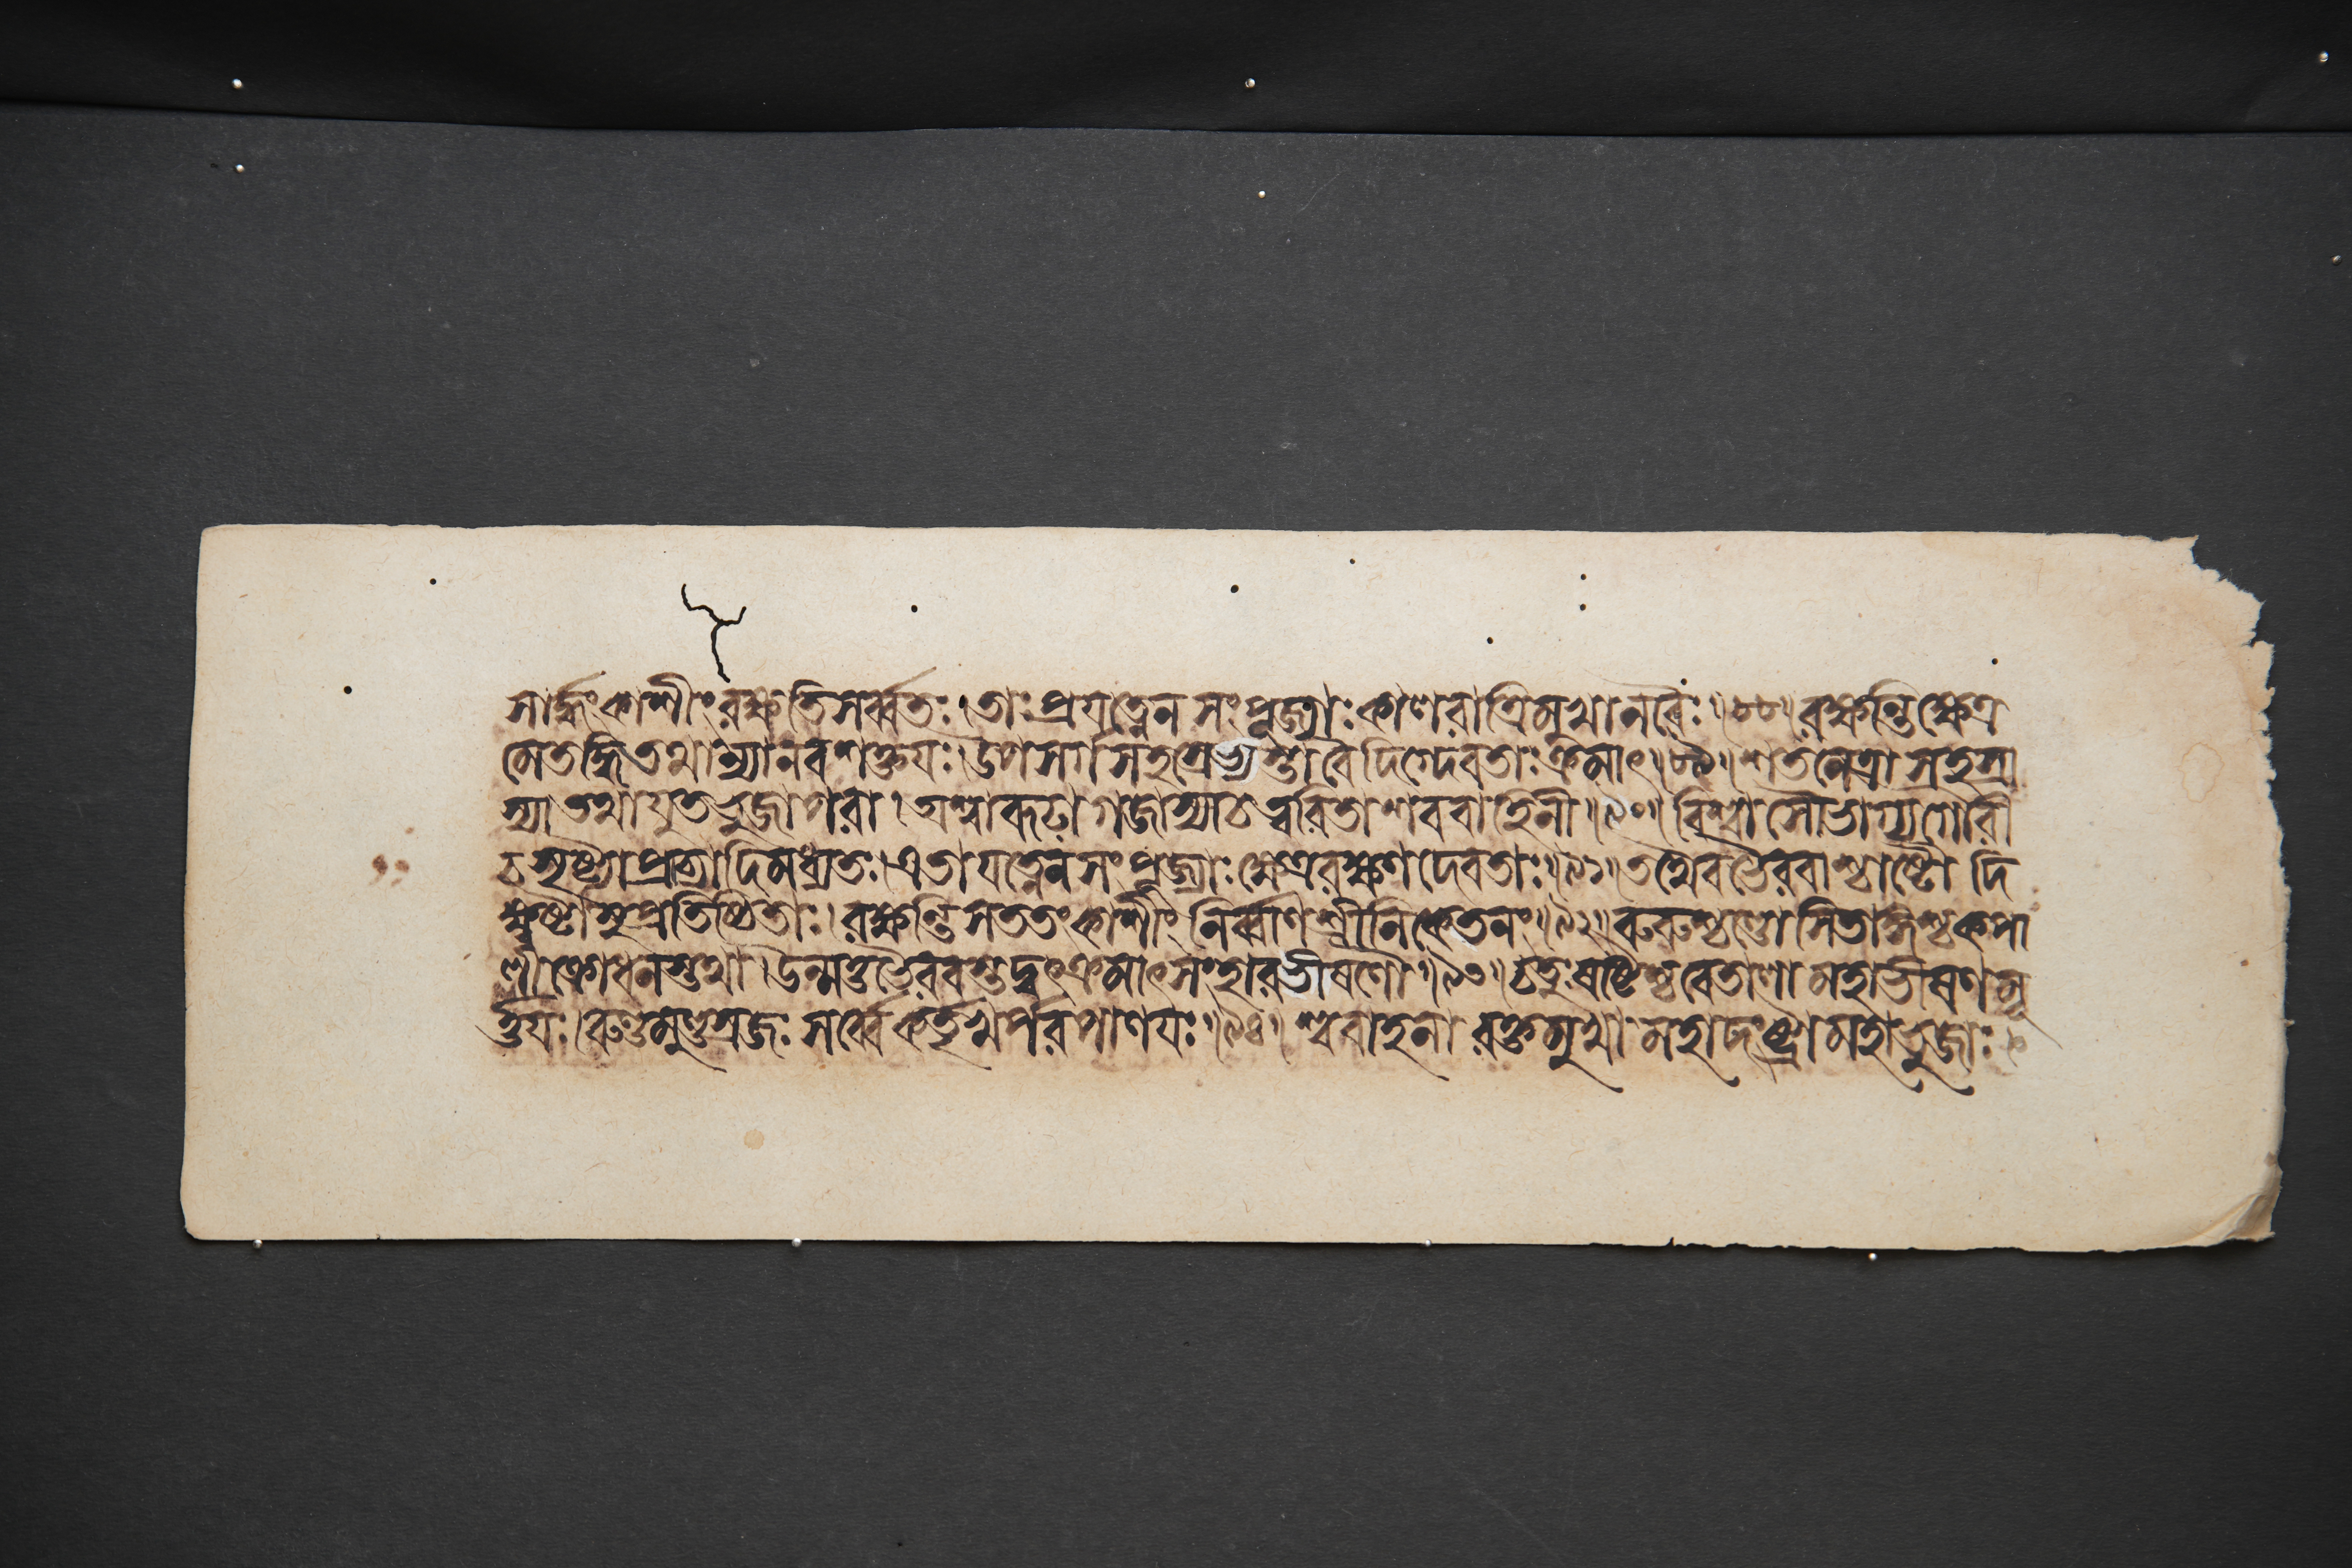 সার্দ্ধংকাশীংরক্ষতিসর্ব্বতঃ।তাঃপ্রযত্নেনসংপূজ্যাঃকাণরাত্রিমুখানরৈঃ॥৮৮॥রক্ষন্তিক্ষেত্র
মেতদ্ধিতথান্যানবশক্তযঃ।উপসর্গসহস্রেভ্যস্তাবৈদিগ্দেবতাঃক্রমাৎ॥৮৯॥শতনেত্রাসহস্রা
স্যাতথাযুতভুজাপরা।অশ্বারূঢাগজাস্যাচত্বরিতাশববাহিনী॥৯০॥বিশ্বাসৌভাগ্যগৌরী
চসৃষ্টাপ্রাচ্যাদিমধ্যতঃ।এতাযত্নেনসংপূজ্যাঃক্ষেত্ররক্ষণদেবতাঃ॥৯১॥তথৈবভৈরবাশ্চাষ্টৌদি
ক্ষ্বষ্টাসুপ্রতিষ্ঠিতাঃ।রক্ষন্তিসততংকাশীংনির্ব্বাণশ্রীনিকেতনং॥৯২॥রুরুশ্চণ্ডোসিতাঙ্গশ্চকপা
ণীক্রোধনস্তথা।উন্মত্তভৈরবস্তদ্বৎক্রমাৎসংহারভীষণৌ॥৯৩॥চতুঃষষ্টিশ্চবেতাণামহাভীষণমূ
র্ত্তযঃ।রুণ্ডমুণ্ডস্রজঃসর্ব্বেকর্তৃখর্পরপাণযঃ॥৯৪॥শ্ববাহনারক্তমুখামহাদংষ্ট্রামহাভুজাঃ